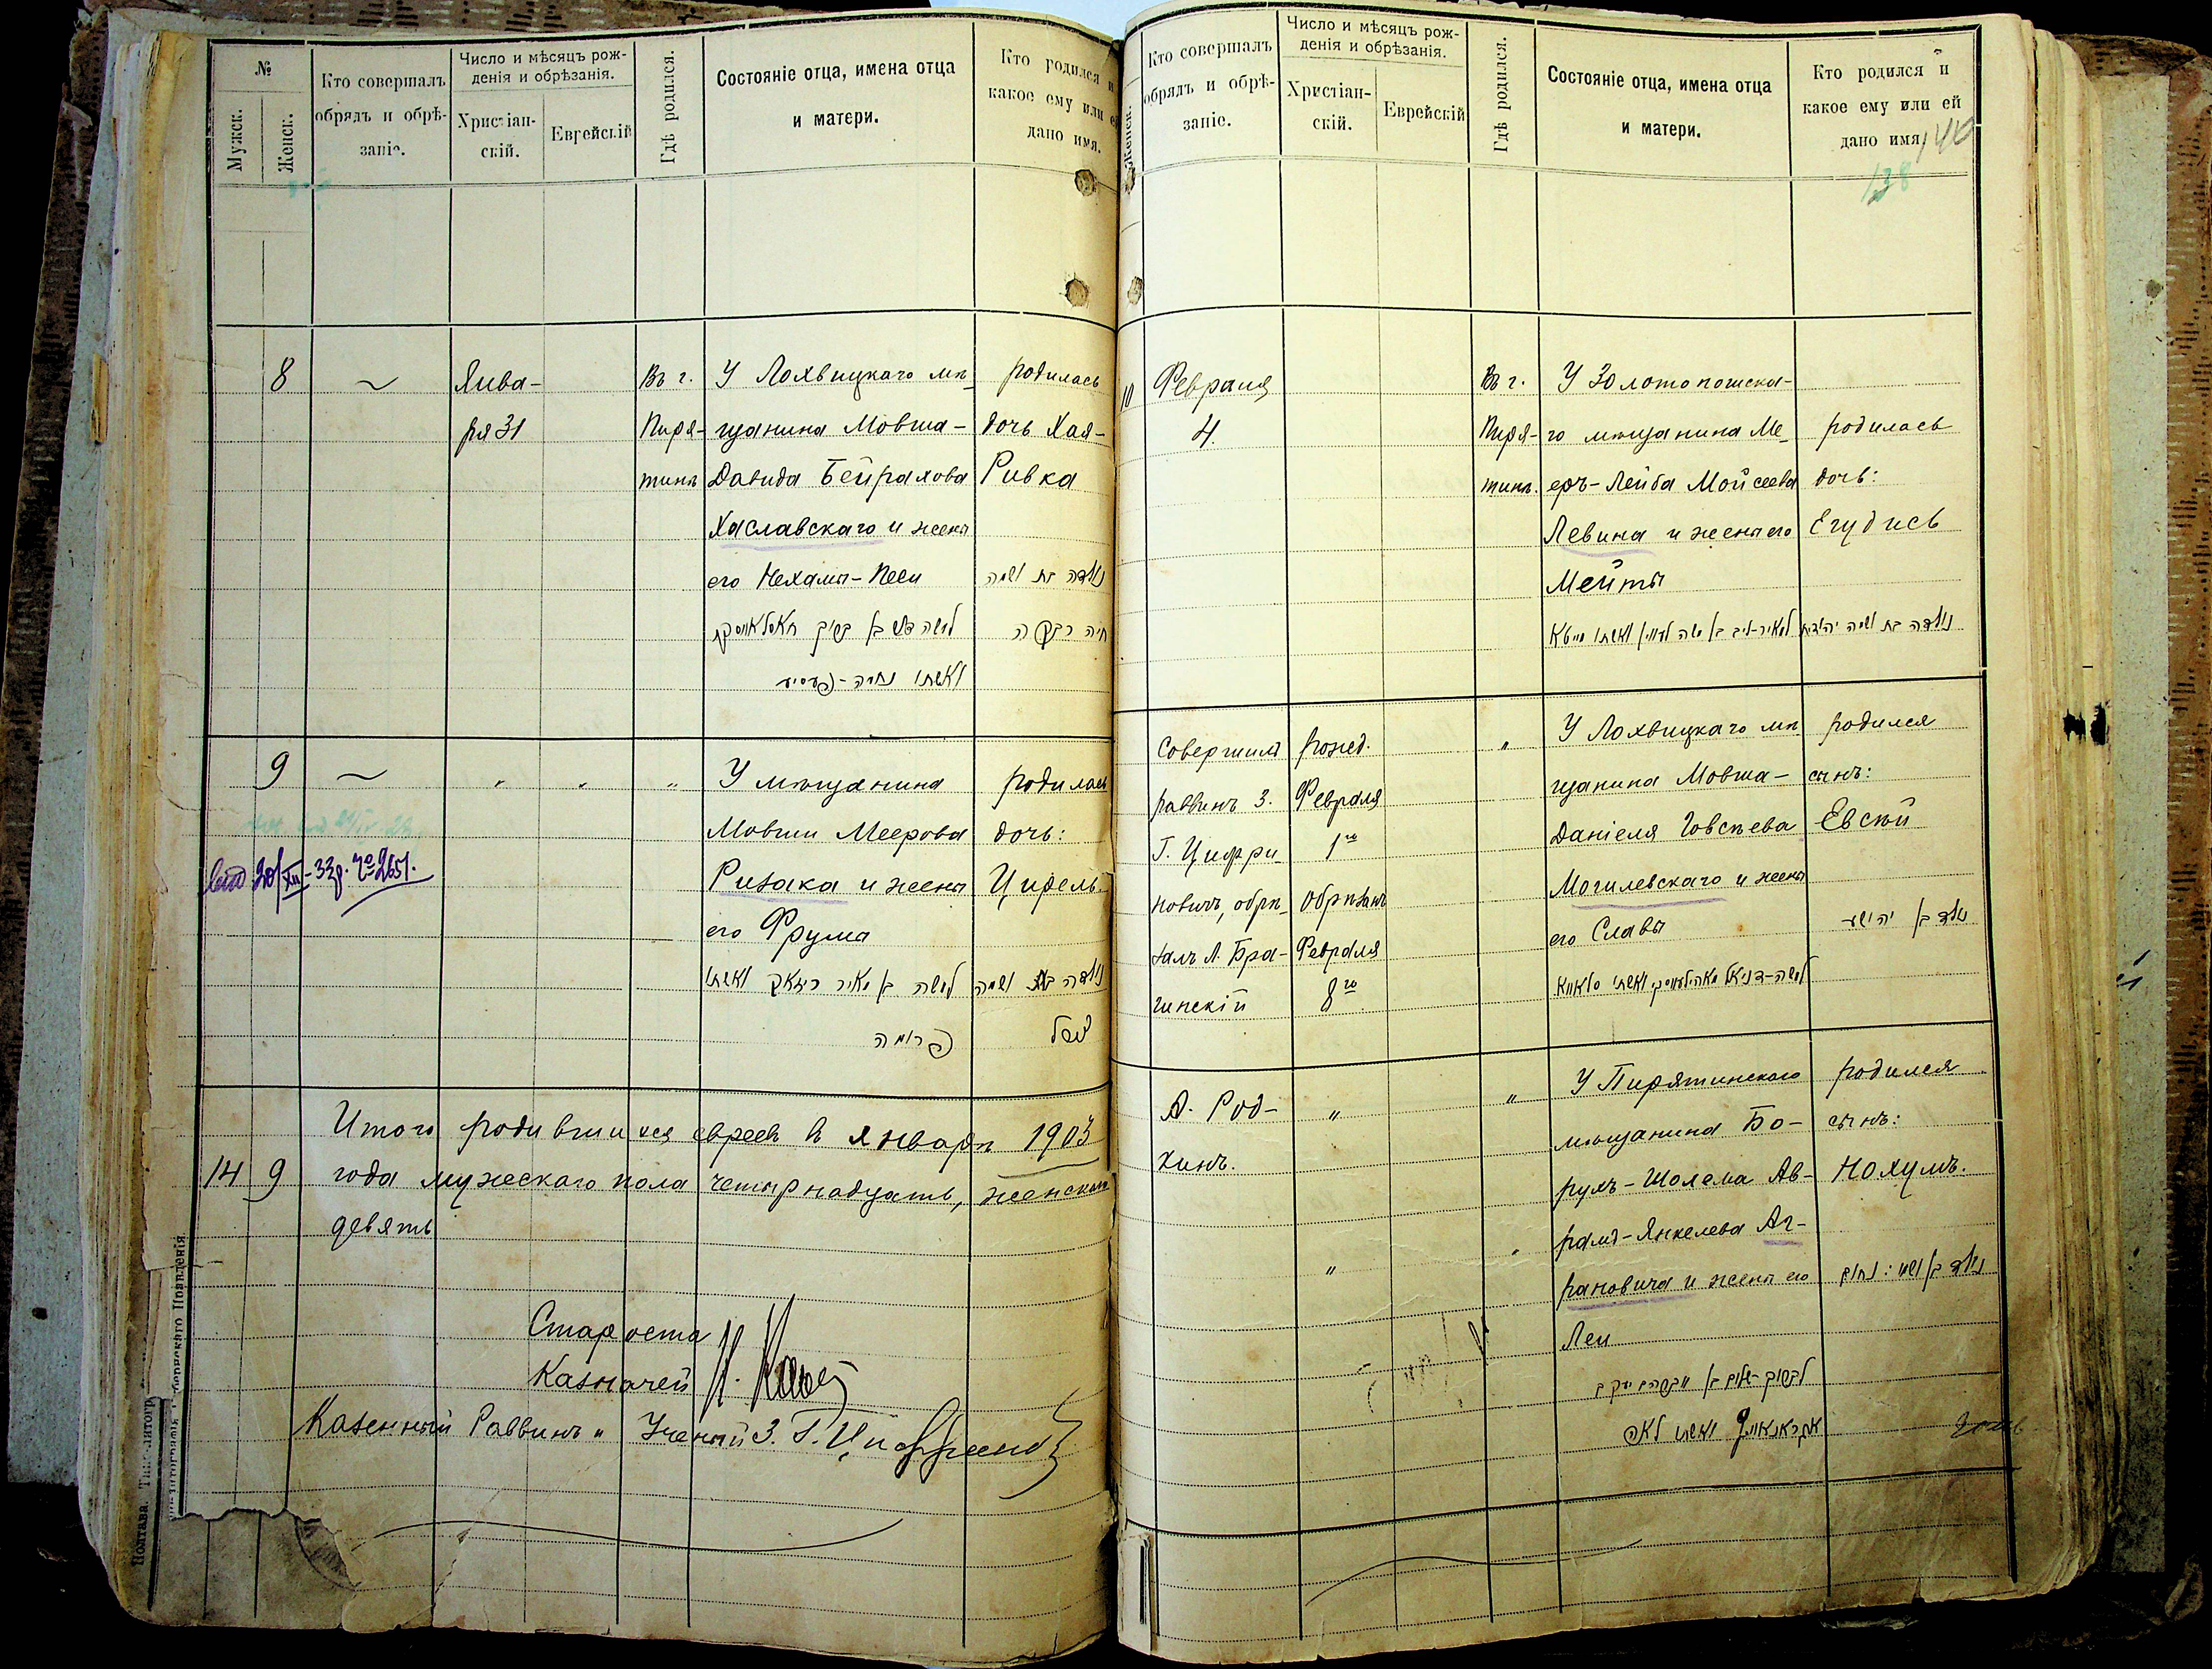 №
Мужск.
Женск.
Кто совершалъ
обрядъ и обрѣ-
заніе.
Число и мѣсяцъ рож-
денія и обрѣзанія.
Христіан-
скій.
Еврейскій
Гдѣ родился.
Состояніе отца, имена отца
и матери.
Кто родился и
какое ему или ей
дано имя.
8
Янва-
ря 31
Въ г.
Пиря-
тинѣ
У Лохвицкаго мѣ-
щанина Мовша-
Давида Бейрахова
Хаславскаго и жены
его Нехамы-Песи
родилась
дочь Хая-
Ривка
נולדה בת ושמה
חיה רבקה
9
У мѣщанина
Мовши Меерова
Ризака и жены
его Фрума
למשה בן מאיר ריזאק ואשתו
פרומה
родилась
дочь:
Ципель.
נולדה בת ושמה
20/XII-33г. № 2651.
Итого родившихся евреев в январѣ 1903
14 9 года мужескаго пола четырнадцать, женскаго
девять
Староста
Казначей
Казенный Раввинъ
Полтава.
Женск.
Кто совершалъ
обрядъ и обрѣ-
заніе.
Число и мѣсяцъ рож-
денія и обрѣзанія.
Христіан-
скій.
Еврейскій
Гдѣ родился.
Состояніе отца, имена отца
и матери.
Кто родился и
какое ему или ей
дано имя.
140
138
10
Февраля
4.
Въ г.
Пиря-
тинѣ.
У Золотоношска-
го мѣщанина Ме-
еръ-Лейба Мойсеева
Левина и жены его
Мейты
родилась
дочь:
Егудись
נולדה בת ושמה יהודית
Совершилъ
раввинъ З.
Г. Цифри-
новичъ, обрѣ-
залъ Л. Бра-
гинскій
рожд.
Февраля
1го
Обрѣзанъ
Февраля
8го
У Лохвицкаго мѣ
щанина Мовша-
Даніеля Іовсѣева
Могилевскаго и жены
его Славы
родился
сынъ:
Евсѣй
נולד בן יהושע
А. Род-
кинъ.
У Пирятинскаго
мѣщанина Бо-
рухъ-Шолема Ав-
рамъ-Янкелева Аг-
рановича и жены его
Леи
родился
сынъ:
Нохумъ.
נולד בן ושמו: נחום